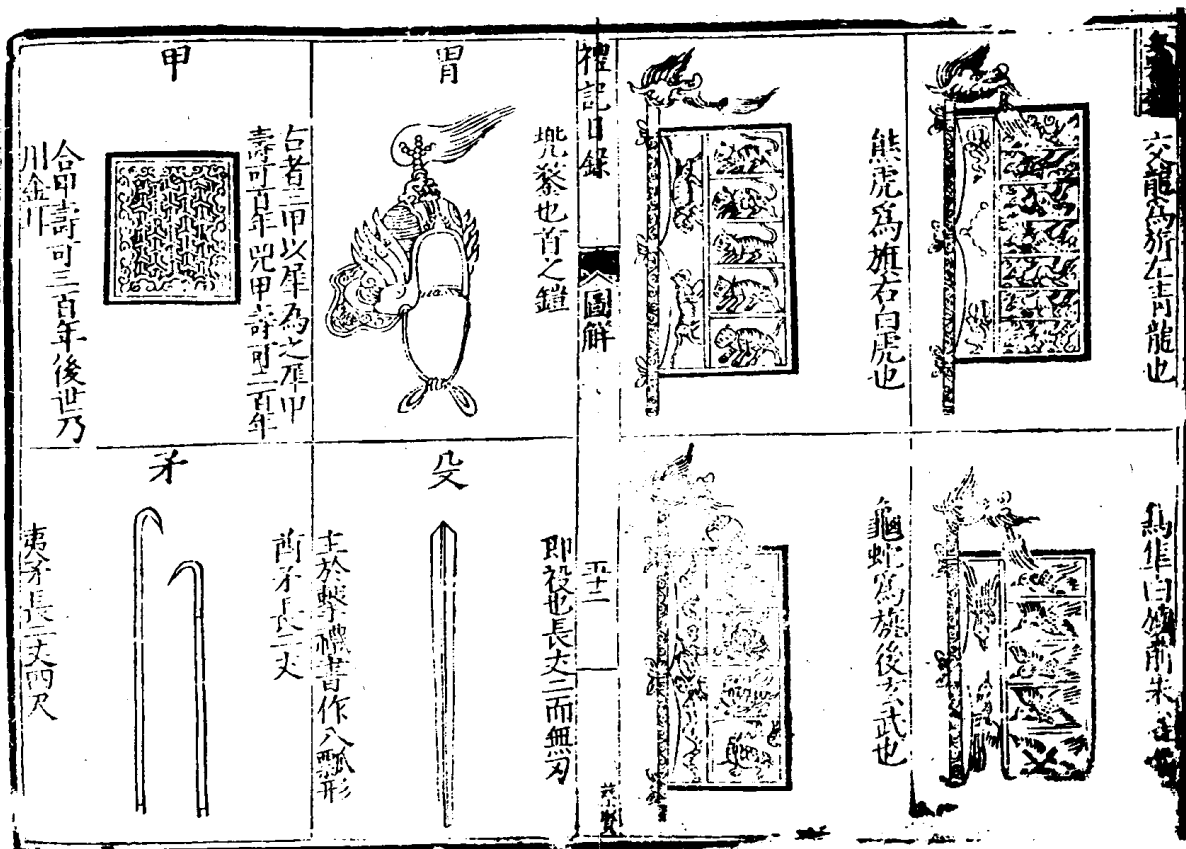 交龍爲旂左青龍也
熊虎爲旗右白虎也
鳥隼
龜蛇爲旐後玄武也
禮記目録
圖解
五十二
蔡賢
冑
兠鍪也首之鎧
甲
古者三甲以犀為之犀甲
壽可百年兕甲壽可二百年
合甲壽可三百年後世乃
用金
殳
即祋也長丈二而無刃
主於擊禮書作八瓢形
矛
酋矛長二丈
夷矛長二丈四尺